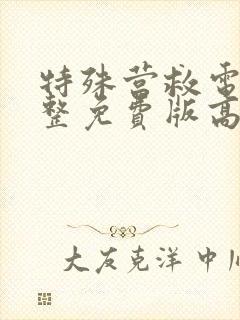 特殊营救電
整免費版高
大友克洋 中川